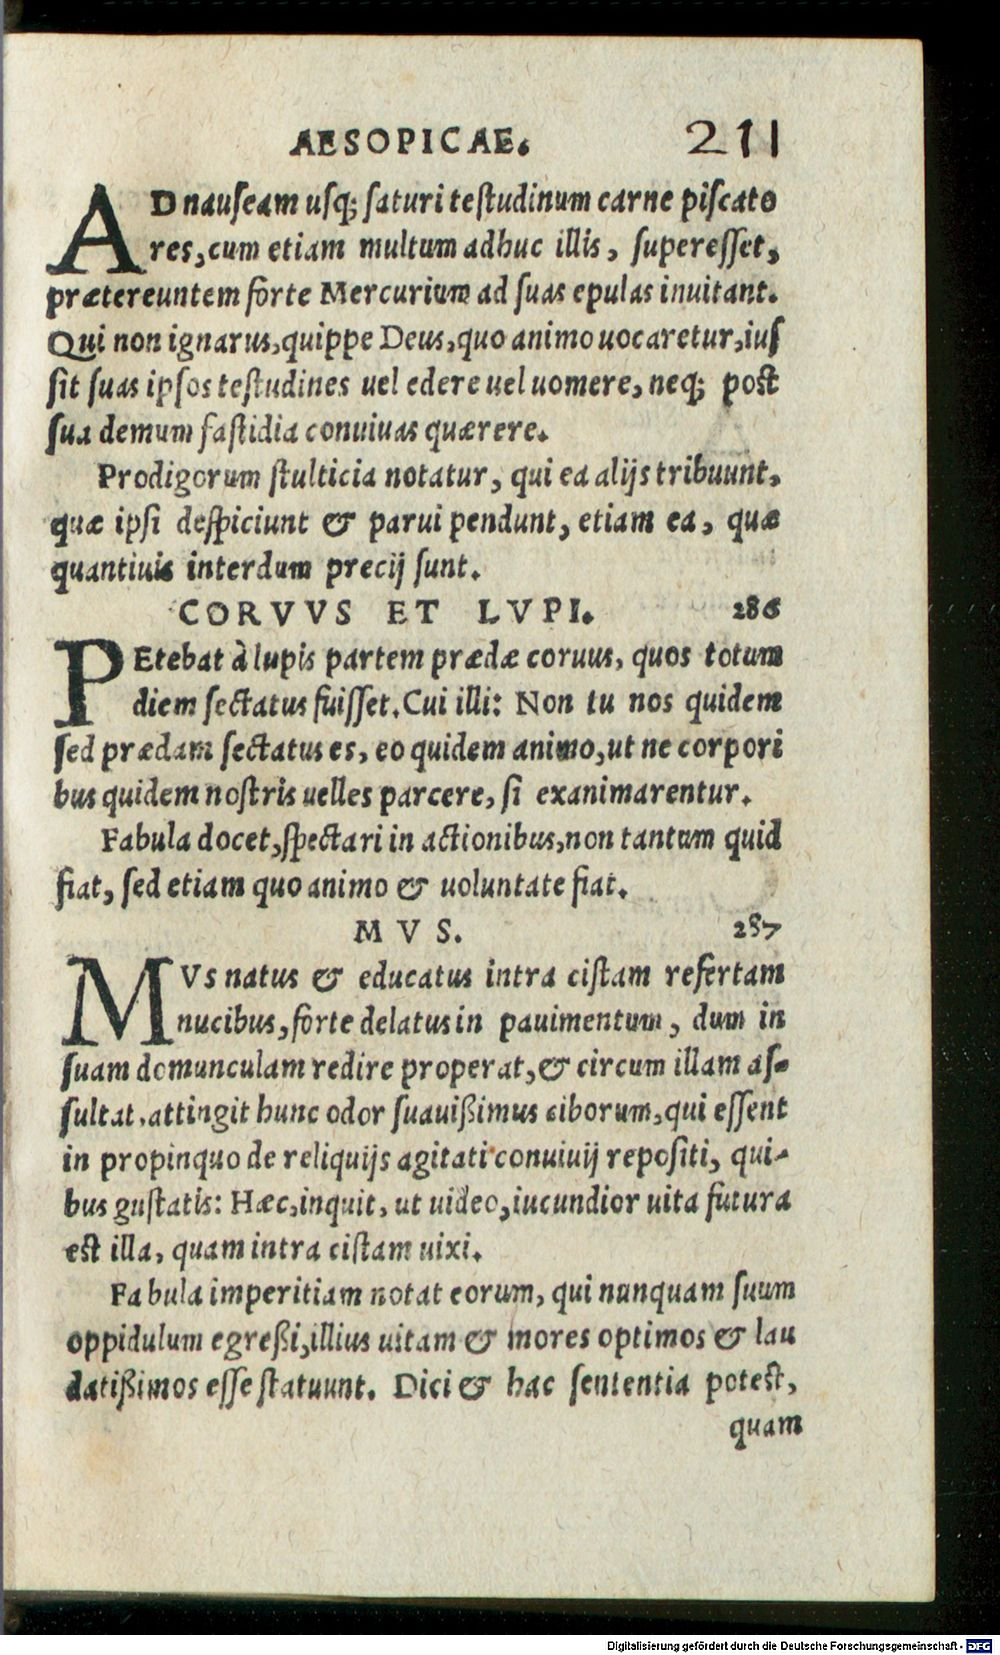 AESOPICAE. 211
AD nauſeam uſq; ſaturi teſtudinum carne piſcato
res, cum etiam multum adhuc illis, ſupereſſet,
prætereuntem forte Mercurium ad ſuas epulas inuitant.
Qui non ignarus, quippe Deus, quo animo uocaretur, iuſ
ſit ſuas ipſos teſtudines uel edere uel uomere, neq; poſt
ſua demum faſtidia conuiuas quærere.
Prodigorum ſtulticia notatur, qui ea alijs tribuunt,
quæ ipſi deſpiciunt & parui pendunt, etiam ea, quæ
quantiuis interdum precij ſunt.
CORVVS ET LVPI. 286
PEtebat à lupis partem prædæ coruus, quos totum
diem ſectatus fuiſſet. Cui illi: Non tu nos quidem
ſed prædam ſectatus es, eo quidem animo, ut ne corpori
bus quidem noſtris uelles parcere, ſi exanimarentur.
Fabula docet, ſpectari in actionibus, non tantum quid
fiat, ſed etiam quo animo & uoluntate fiat.
MVS. 287
MVs natus & educatus intra ciſtam refertam
nucibus, forte delatus in pauimentum, dum in
ſuam domunculam redire properat, & circum illam aſ-
ſultat, attingit hunc odor ſuauißimus ciborum, qui eſſent
in propinquo de reliquijs agitati conuiuij repoſiti, qui-
bus guſtatis: Hæc, inquit, ut uideo, iucundior uita futura
eſt illa, quam intra ciſtam uixi.
Fabula imperitiam notat eorum, qui nunquam ſuum
oppidulum egreßi, illius uitam & mores optimos & lau
datißimos eſſe ſtatuunt. Dici & hac ſententia poteſt,
quam
Digitalisierung gefördert durch die Deutsche Forschungsgemeinschaft - DFG